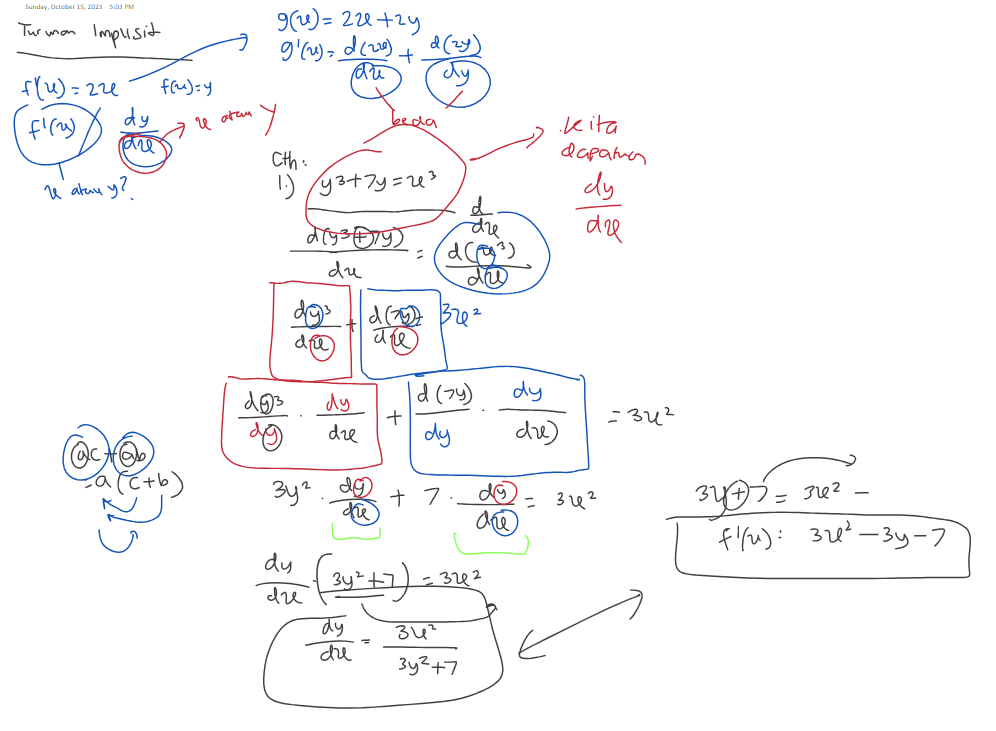 Sunday, October 15, 2023 5:03 PM
Turunan Implisit
f'(x) = 2x f(x)=y
f'(x) dy/dx x atau y
x atau y?
g(x) = 2x + 2y
g'(x) = d(2x)/dx + d(2y)/dy
beda
kita
dapatkan
dy/dx
Cth:
1.) y³+7y=x³
d/dx
d(y³+7y)/dx = d(x³)/dx
dy³/dx + d(7y)/dx = 3x²
dy³/dy · dy/dx + d(7y)/dy · dy/dx) = 3x²
ac+ab
=a(c+b)
3y² · dy/dx + 7 · dy/dx = 3x²
dy/dx · (3y²+7) = 3x²
dy/dx = 3x²/3y²+7
3y+7 = 3x² −
f'(x): 3x² − 3y − 7